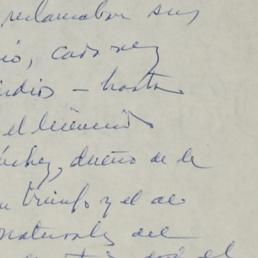 reclamaban sus
io, cada vez
udios — hasta
el licenciado
nchez, dueño de la
u triunfo y el de
naturales del